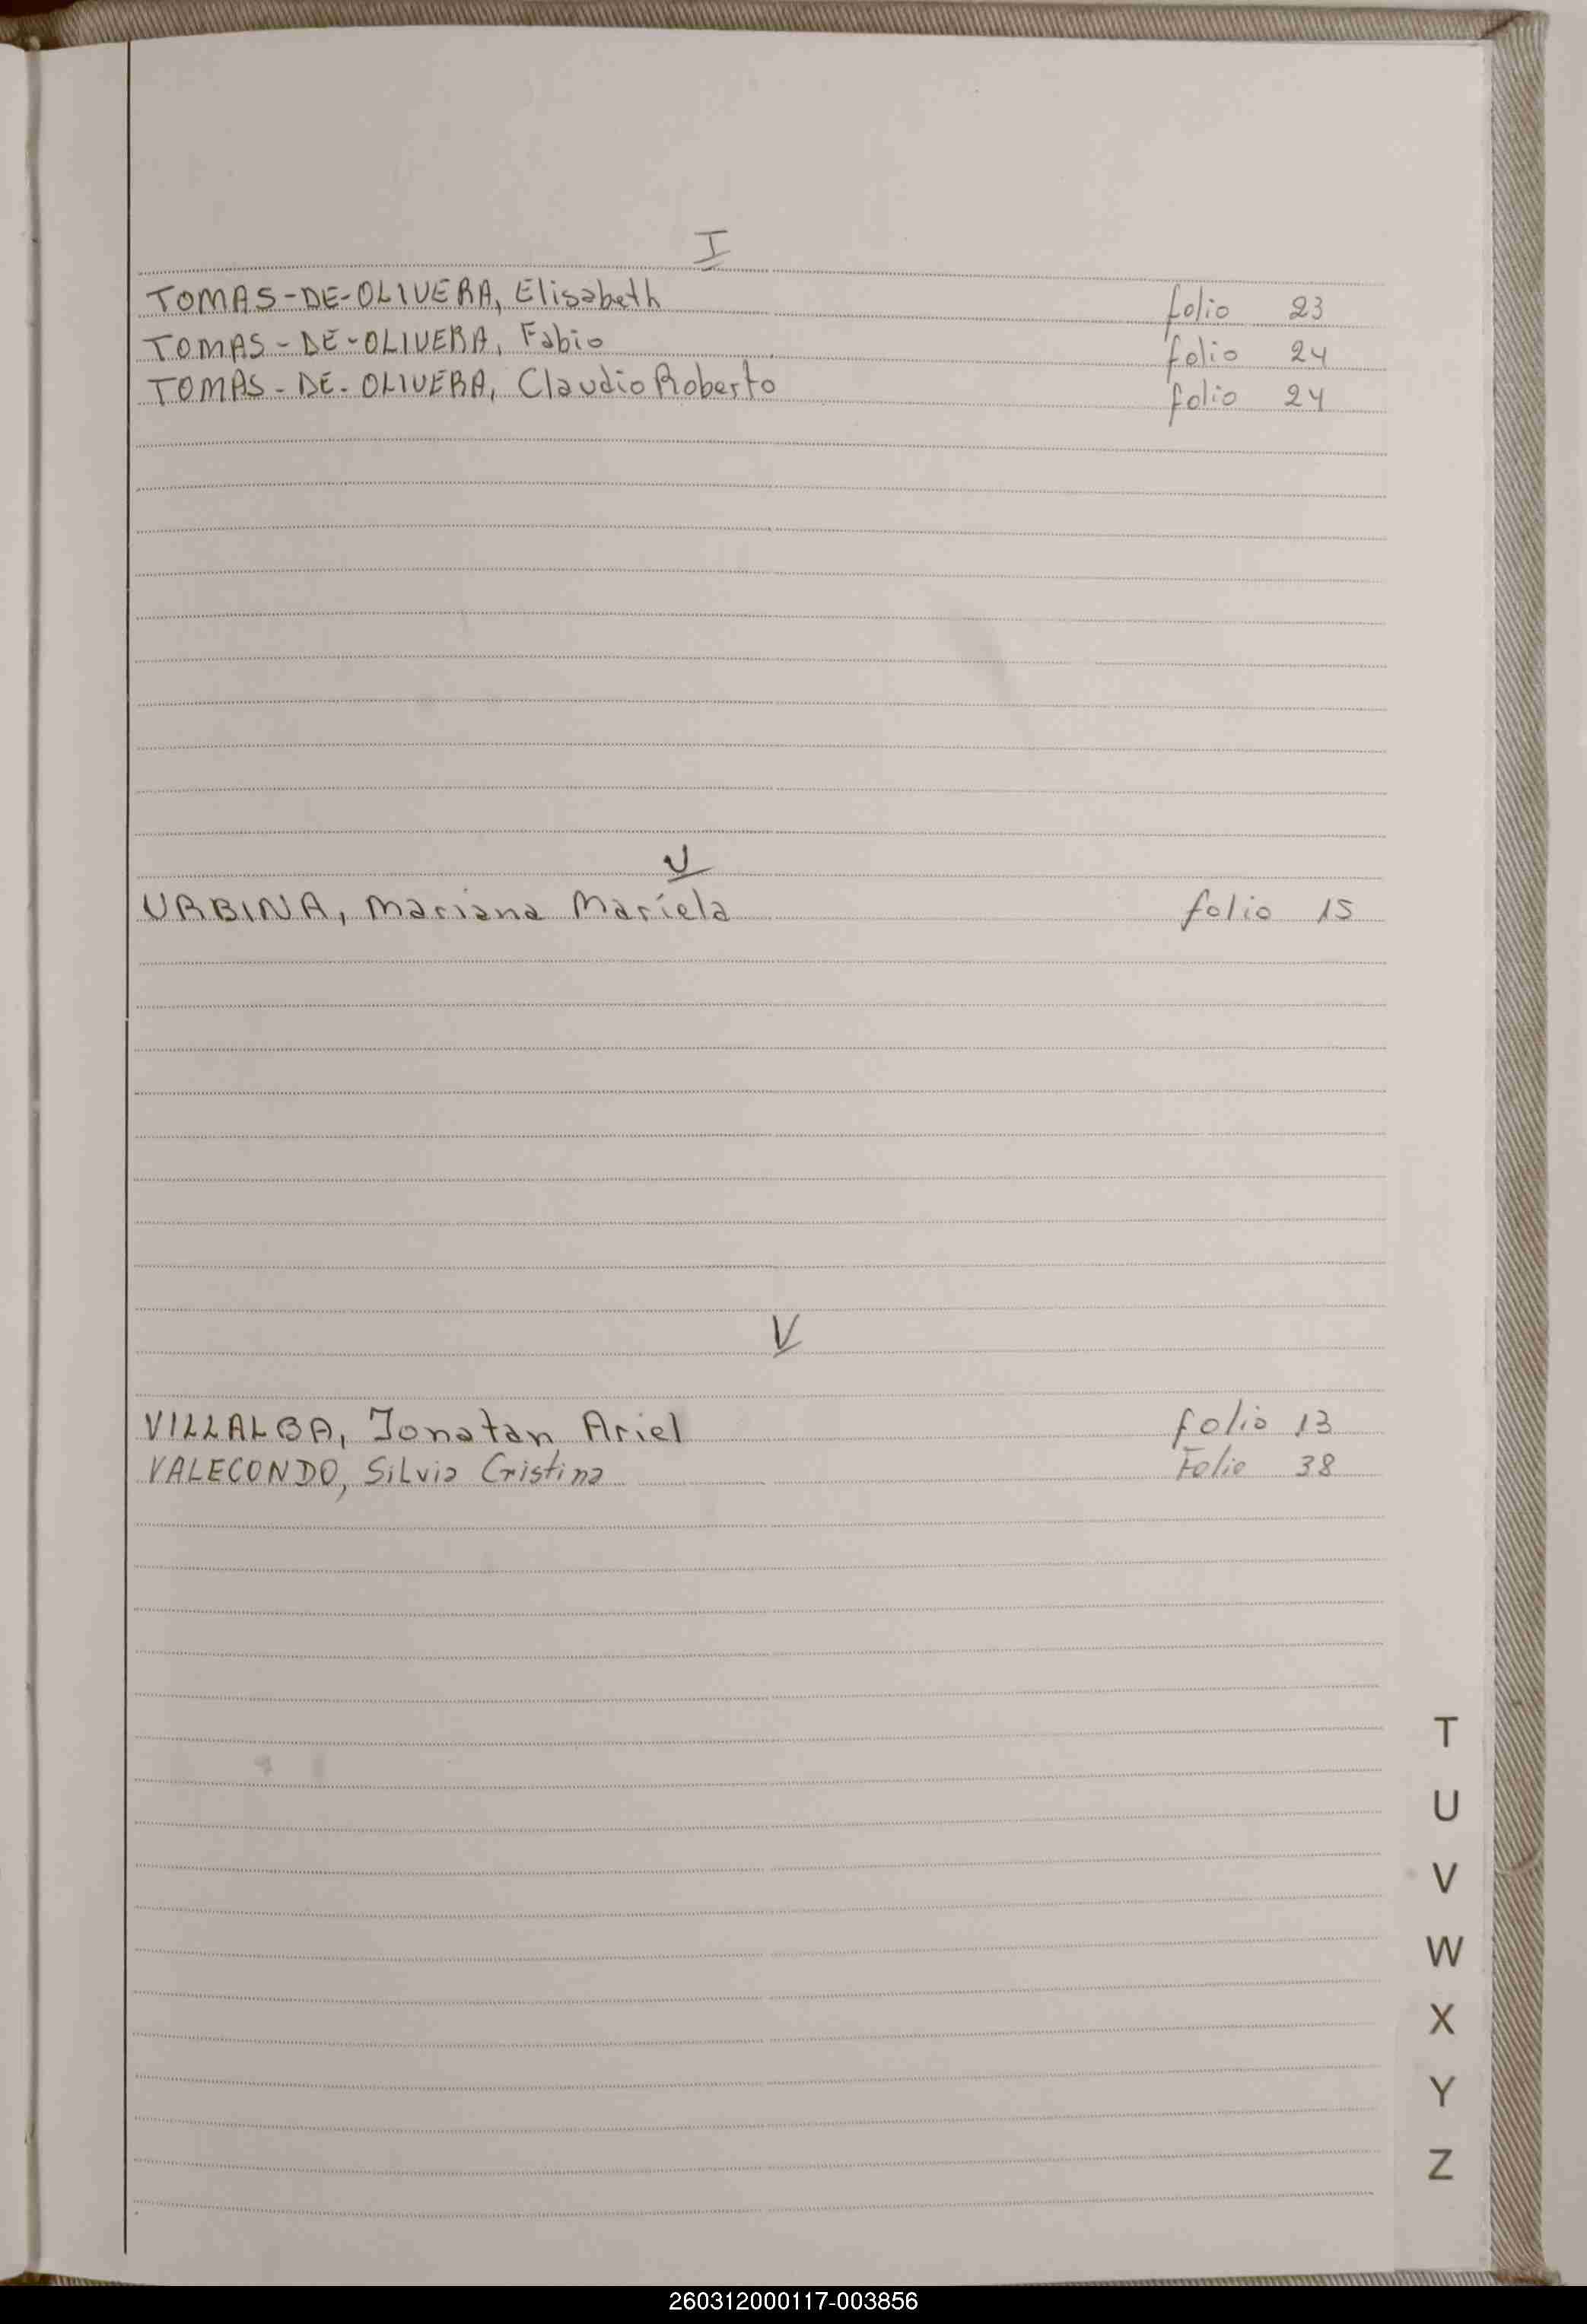 T
TOMAS-DE-OLIVERA, Elisabeth folio 23
TOMAS-DE-OLIVERA, Fabio folio 24
TOMAS-DE-OLIVERA, Claudio Roberto folio 24
U
URBINA, Mariana Mariela folio 15
V
VILLALBA, Jonatan Ariel folio 13
VALECONDO, Silvia Cristina Folio 38
T
U
V
W
X
Y
Z
260312000117-003856